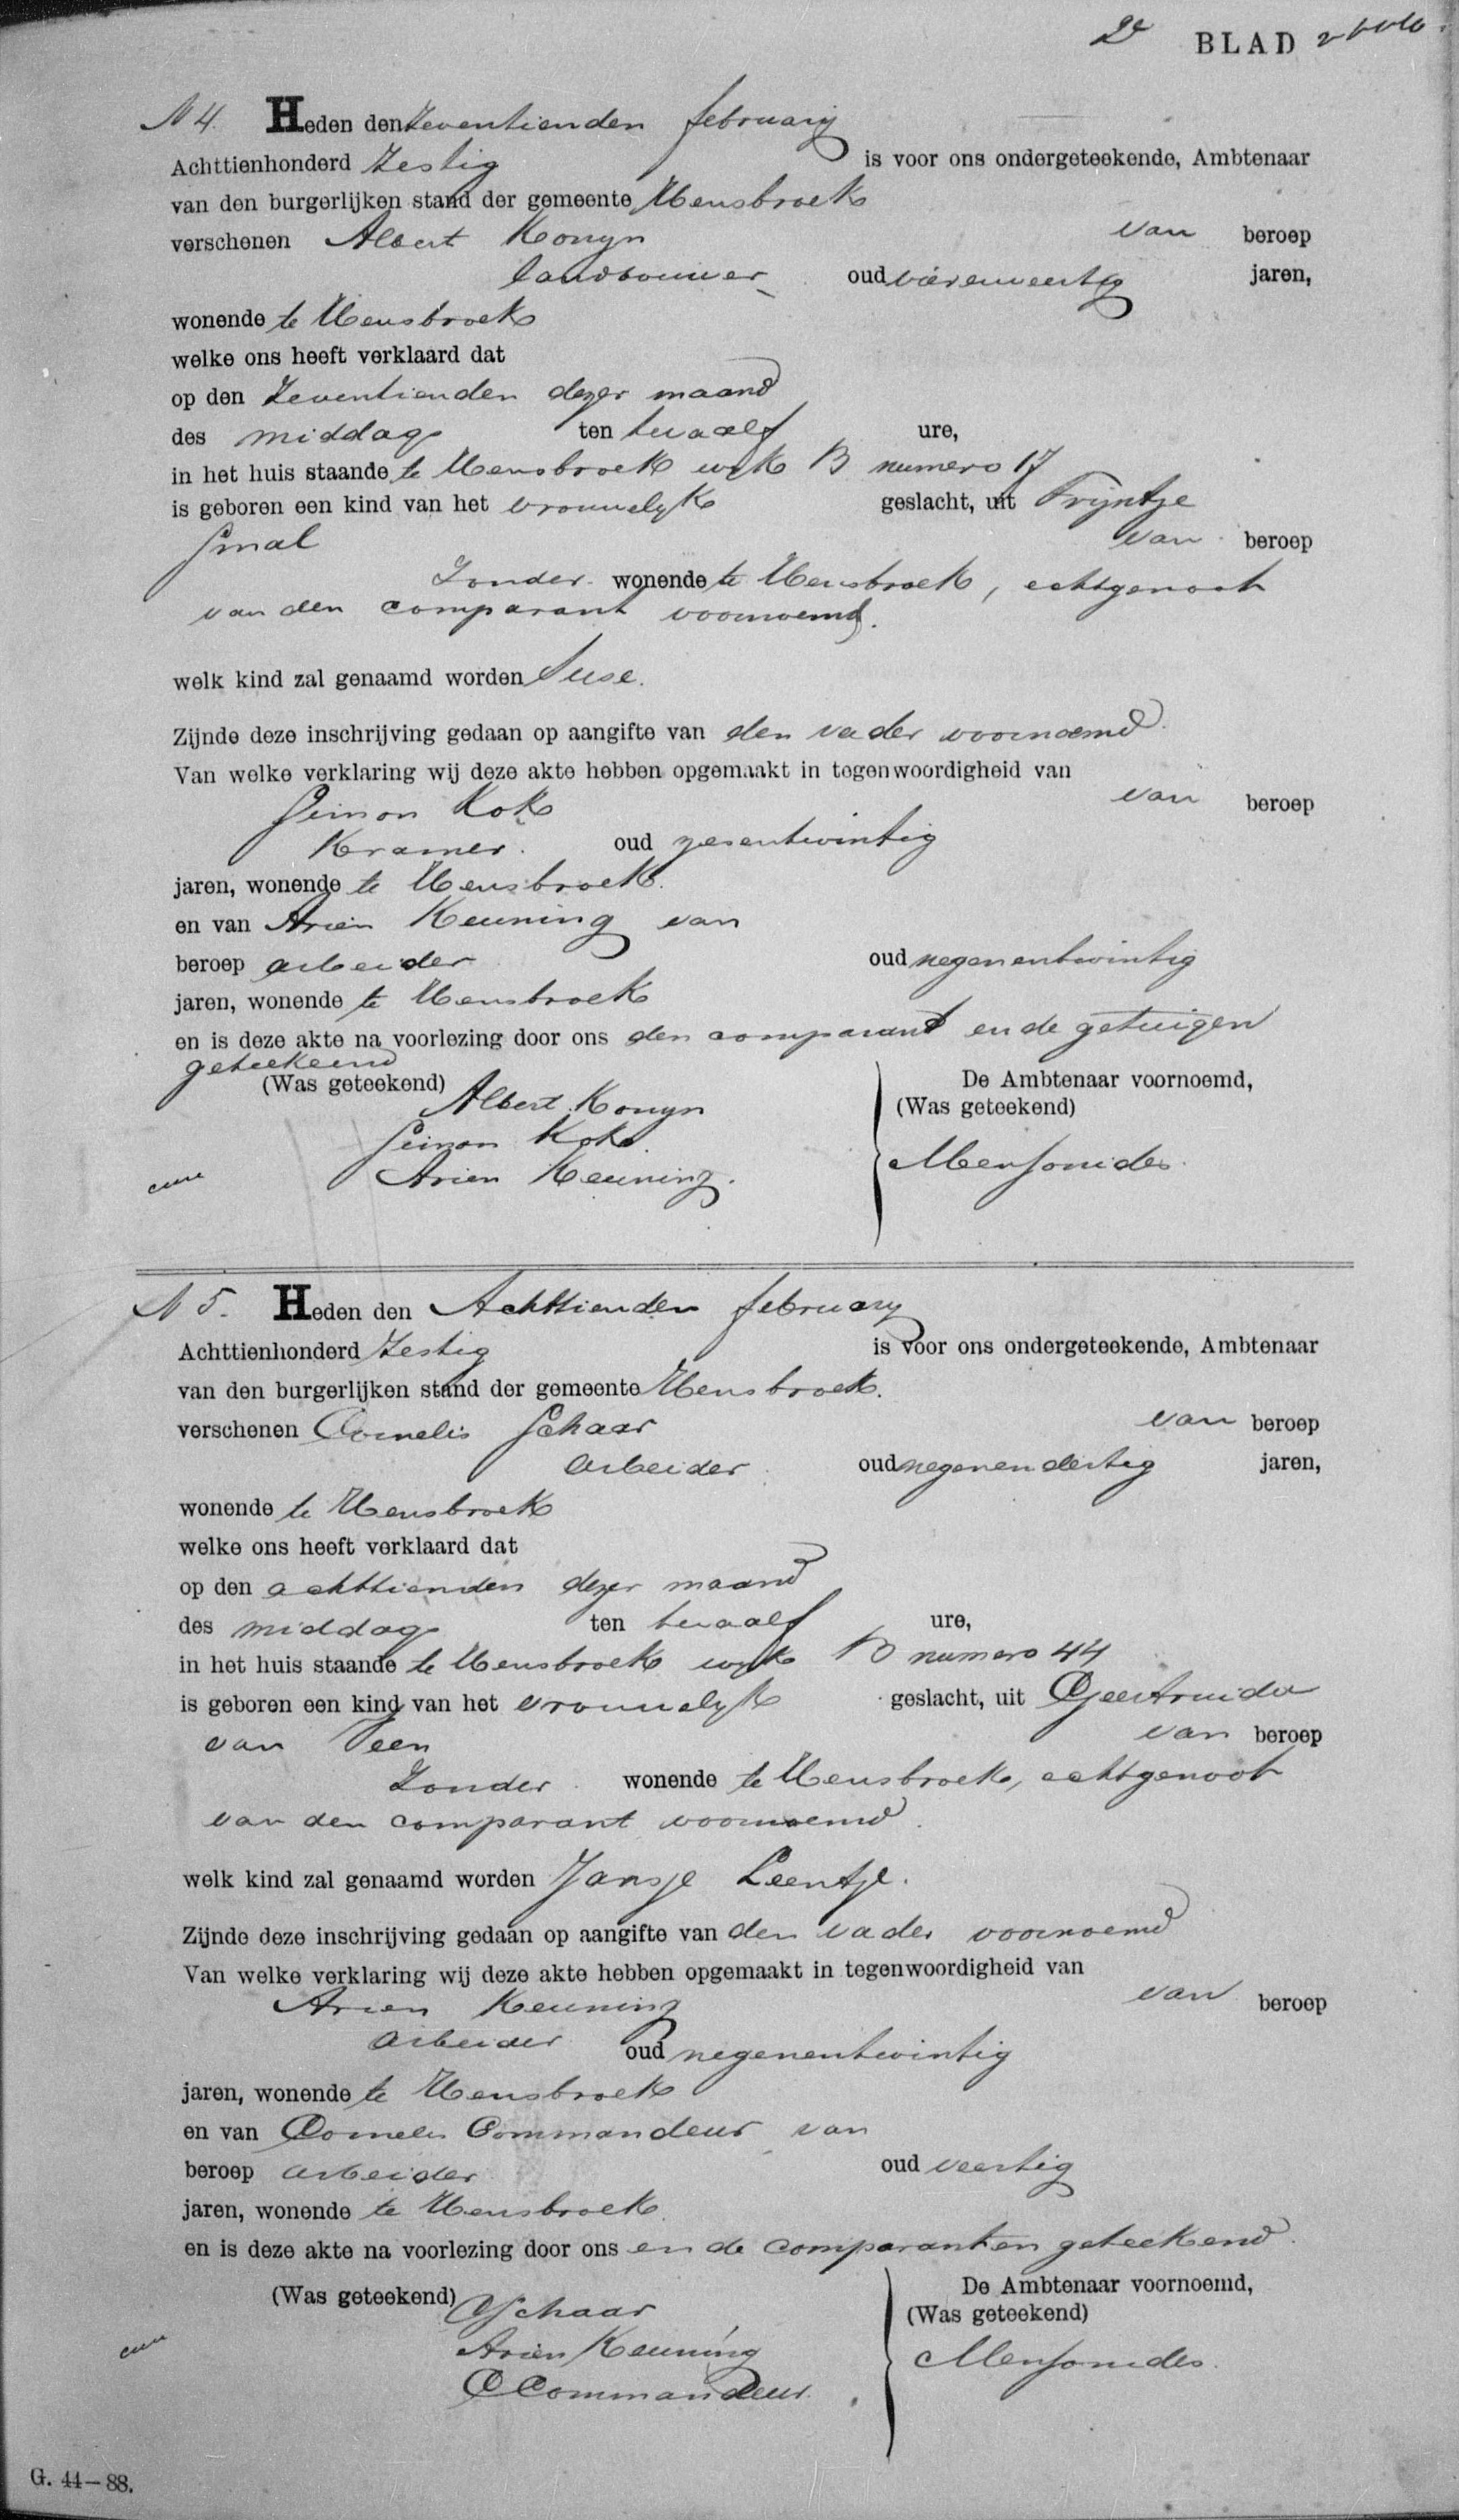 2e BLAD
N 4. Heden den Zeventienden february
Achttienhonderd Zestig is voor ons ondergeteekende, Ambtenaar
van den burgerlijken stand der gemeente Hensbroek
verschenen Albert Konyn van beroep
landbouwer oud vierenveertig jaren,
wonende te Hensbroek
welke ons heeft verklaard dat
op den Zeventienden dezer maand
des middags ten twaalf ure,
in het huis staande te Hensbroek wyk B numero 17
is geboren een kind van het vrouwelyk geslacht, uit Tryntje
Smal van beroep
Zonder wonende te Hensbroek, echtgenoot
van den comparant voornoemd.
welk kind zal genaamd worden
Zijnde deze inschrijving gedaan op aangifte van den vader voornoemd
Van welke verklaring wij deze akte hebben opgemaakt in tegenwoordigheid van
Seimon Kok van beroep
Kramer. oud zesentwintig
jaren, wonende te Hensbroek.
en van Arien Keuning van
beroep arbeider oud negenentwintig
jaren, wonende te Hensbroek
en is deze akte na voorlezing door ons den comparant en de getuigen
geteekend
(Was geteekend) De Ambtenaar voornoemd,
Albert Konyn (Was geteekend)
Seimon Kok.
Arien Keuning. Mensonides.
N 5. Heden den Achttienden february
Achttienhonderd Zestig is voor ons ondergeteekende, Ambtenaar
van den burgerlijken stand der gemeente Hensbroek.
verschenen Cornelis Schaar van beroep
Arbeider oud negenendertig jaren,
wonende te Hensbroek
welke ons heeft verklaard dat
op den achttienden dezer maand
des middags ten twaalf ure,
in het huis staande te Hensbroek wyk B numero 44
is geboren een kind van het vrouwelyk geslacht, uit Geertruida
van Veen van beroep
Zonder wonende te Hensbroek, echtgenoot
van den comparant voornoemd.
welk kind zal genaamd worden Jansje Leentje.
Zijnde deze inschrijving gedaan op aangifte van den vader voornoemd
Van welke verklaring wij deze akte hebben opgemaakt in tegenwoordigheid van
Arien Keuning van beroep
arbeider oud negenentwintig
jaren, wonende te Hensbroek
en van Cornelis Commandeur van
beroep arbeider oud veertig
jaren, wonende te Hensbroek.
en is deze akte na voorlezing door ons en de comparanten geteekend.
(Was geteekend) De Ambtenaar voornoemd,
CSchaar (Was geteekend)
Arien Keuning Mensonides.
CCommandeur.
G. 44—88.